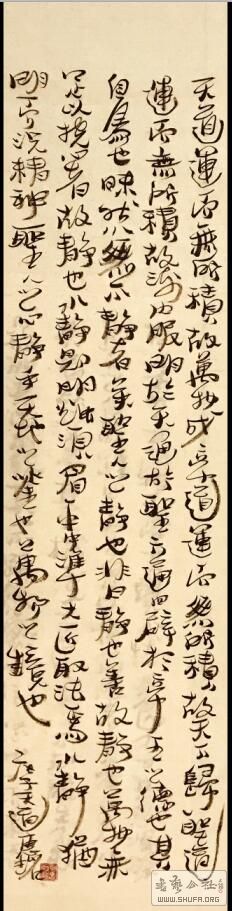 天道運而無所積故萬物成帝道運而無所積故天下歸聖道
運而無所積故海內服明於天通於聖六通四辟於帝王之德也其
自為也昧然無不靜者矣聖人之靜也非曰靜也善故靜也萬物無
足以撓心者故靜也水靜則明燭鬚眉平中準大匠取法焉水靜猶
明而況精神聖人之心靜乎天地之鑒也萬物之鏡也
庄子天道
书艺公社
WWW.SHUFA.ORG